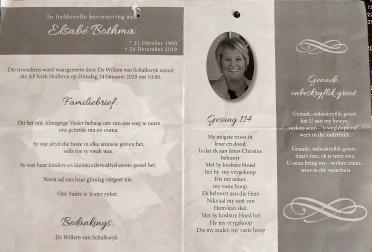 In liefdevolle herinnering aan
Elsabé Bothma
* 21 Oktober 1960
† 24 Desember 2019
Die troosdiens word waargeneem deur Ds Willem van Schalkwyk vanuit
die AP Kerk Heilbron op Dinsdag 14 Januarie 2020 om 10:00.
Familiebrief
Dit het ons Almagtige Vader behaag om van ons weg te neem
ons geliefde ma en ouma.
Sy wat altyd die beste in elke situasie gesien het,
selfs toe sy swak was.
Sy wat haar kinders en kleinkinders altyd eerste gestel het.
Nooit sal ons haar glimlag vergeet nie.
Ons Vader is ryker.
Bedankings
Ds Willem van Schalkwyk
Gesang 114
My enigste troos in
lewe en dood
Is dat ek aan Jesus Christus
behoort
Met Sy kosbare bloed
het hy my vrygekoop
Dis my anker,
my vaste hoop.
Ek behoort aan die Here
Niks sal my ooit van
Hom kan skei.
Met Sy kosbare bloed het
Hy my vrygekoop
Dis my anker, my vaste hoop
Genade
onbeskryflik groot
Genade, onbeskryflik groot
het U aan my bewys:
verlore seun -
ek is weer
Genade, onbeskryflik groot -
ek is weer
U seuns bring my -
in die Vaderhuis.